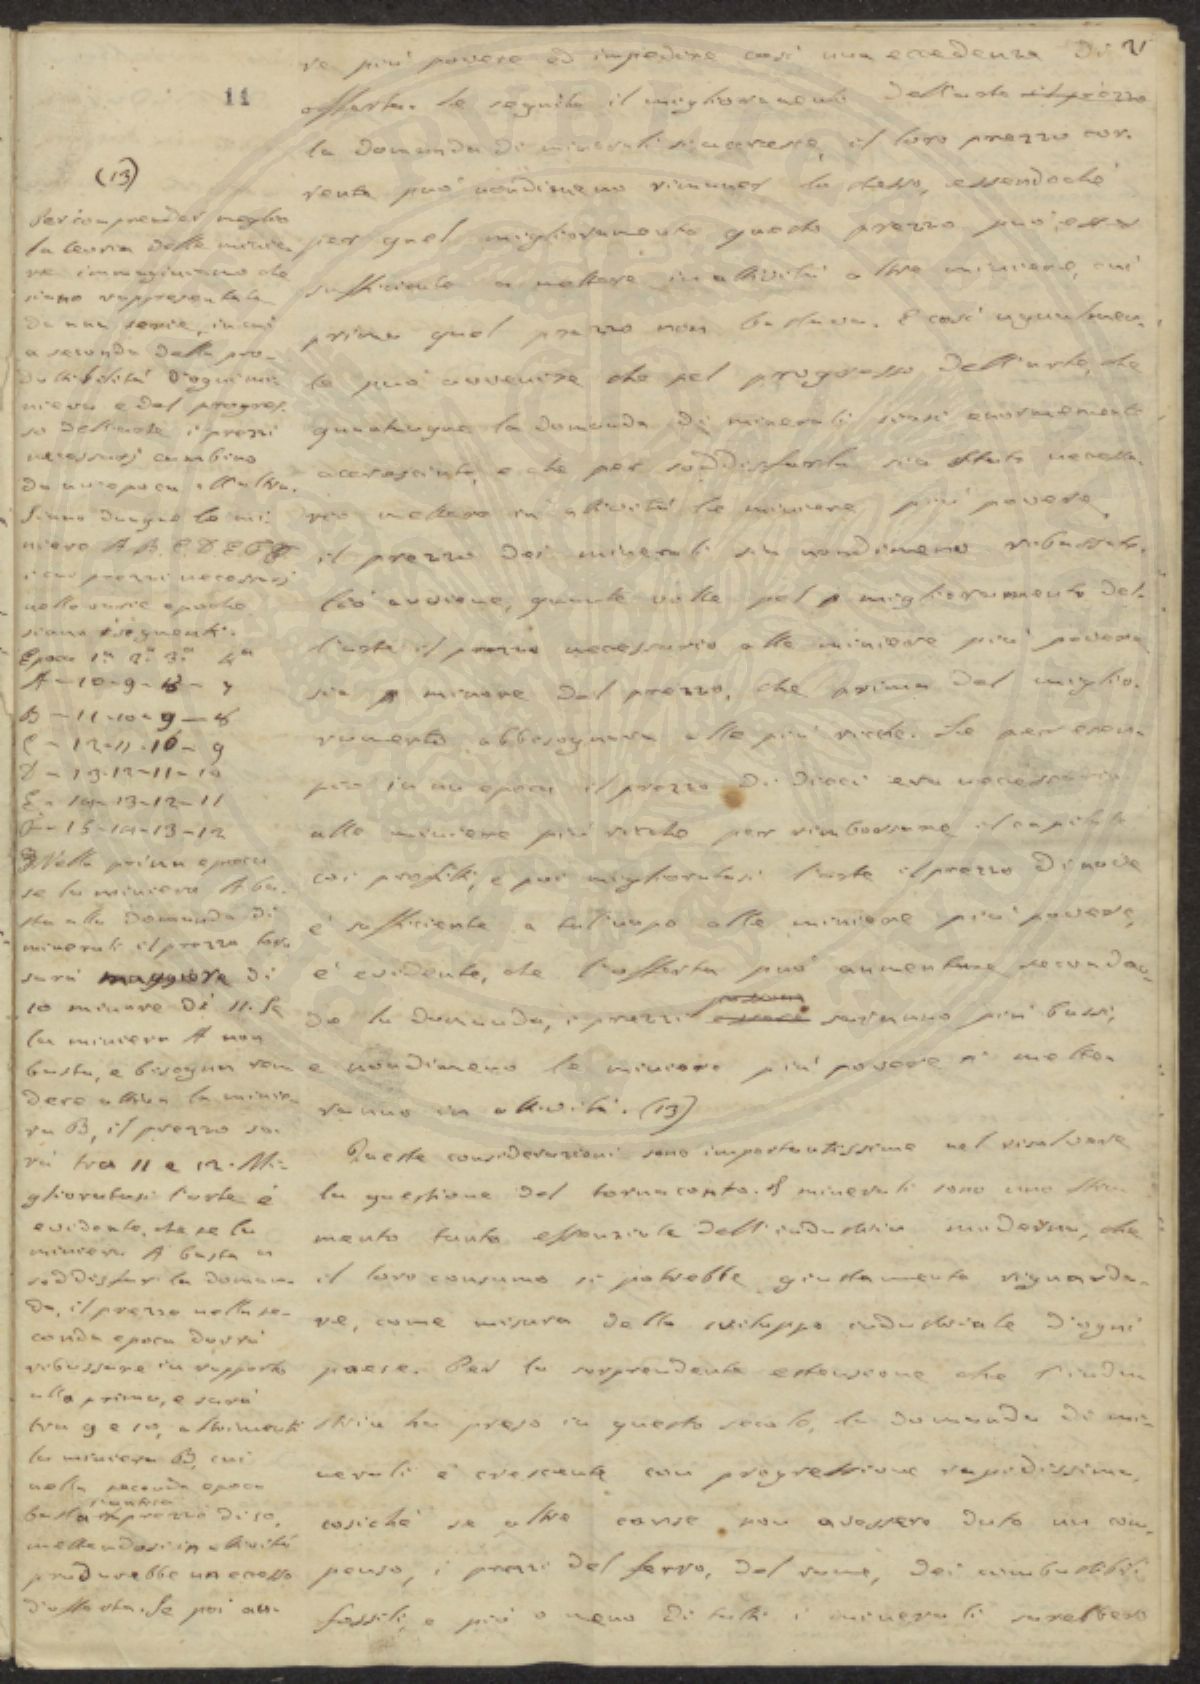 21
11
re più povere ed impedire così una eccedenza di
offerta. Se seguito il miglioramento dell'arte il prezzo
la domanda di minerali si accresce, il loro prezzo cor-
rente può nondimeno rimaner lo stesso, essendochè
per quel miglioramento questo prezzo può esser
sufficiente a mettere in attività altre miniere, cui
prima quel prezzo non bastava. E così ugualmen-
te può avvenire che pel progresso dell'arte, che
quantunque la domanda di minerali siasi enormemente
accresciuta, e che per soddisfarla sia stato necessa-
rio mettere in attività le miniere più povere,
il prezzo dei minerali sia nondimeno ribassato.
Ciò avviene, quante volte pel miglioramento del-
l'arte il prezzo necessario alle miniere più povere
sia minore del prezzo, che prima del miglio-
ramento abbisognava alle più ricche. Se per esem-
pio in un epoca il prezzo di dieci era necessario
alle miniere più ricche per rimborsare il capitale
coi profitti, e poi miglioratasi l'arte il prezzo di nove
è sufficiente a tal'uopo alle miniere più povere,
è evidente, che l'offerta può aumentare secondan-
do la domanda, i prezzi essere saranno più bassi,
e nondimeno le miniere più povere si mette-
ranno in attività. (13)
Queste considerazioni sono importantissime nel risolvere
la questione del tornaconto. I minerali sono uno stru-
mento tanto essenziale dell'industria moderna, che
il loro consumo si potrebbe giustamente riguarda-
re, come misura dello sviluppo industriale d'ogni
paese. Per la sorprendente estensione che l'indu-
stria ha preso in questo secolo, la domanda di mi-
nerali è crescente con progressione rapidissima,
cosichè se altre cause non avessero dato un com-
penso, i prezzi del ferro, del rame, dei combustibili
fossili, e più o meno di tutti i minerali sarebbero
(13)
Per comprender meglio
la teoria delle minie-
re immaginiamo che
siano rappresentate
da una serie, in cui
a seconda della pro-
duttibilità d'ogni mi-
niera e del progres-
so dell'arte i prezzi
necessarj cambino
da un epoca all'altra.
Siano dunque le mi-
niere A B C D E F
i cui prezzi necessarj
nelle varie epoche
siano i seguenti.
Epoca 1a 2a 3a 4a
A - 10 - 9 - 8 - 7
B - 11 - 10 - 9 - 8
C - 12 - 11 - 10 - 9
D - 13 - 12 - 11 - 10
E - 14 - 13 - 12 - 11
F - 15 - 14 - 13 - 12
Nella prima epoca
se la miniera A ba-
sta alla domanda di
minerali il prezzo loro
sarà maggiore di
10 minore di 11. Se
la miniera A non
basta, e bisogna ren-
dere attiva la minie-
ra B, il prezzo sa-
rà tra 11 e 12. Mi-
glioratasi l'arte è
evidente, che se la
miniera A basta a
soddisfar la doman-
da, il prezzo nella se-
conda epoca dovrà
ribassare in rapporto
alla prima, e sarà
tra 9 e 10, altrimenti
la miniera B, cui
nella seconda epoca
basta prezzo di 10,
mettendosi in attività
produrebbe un eccesso
d'offerta. Se poi au-